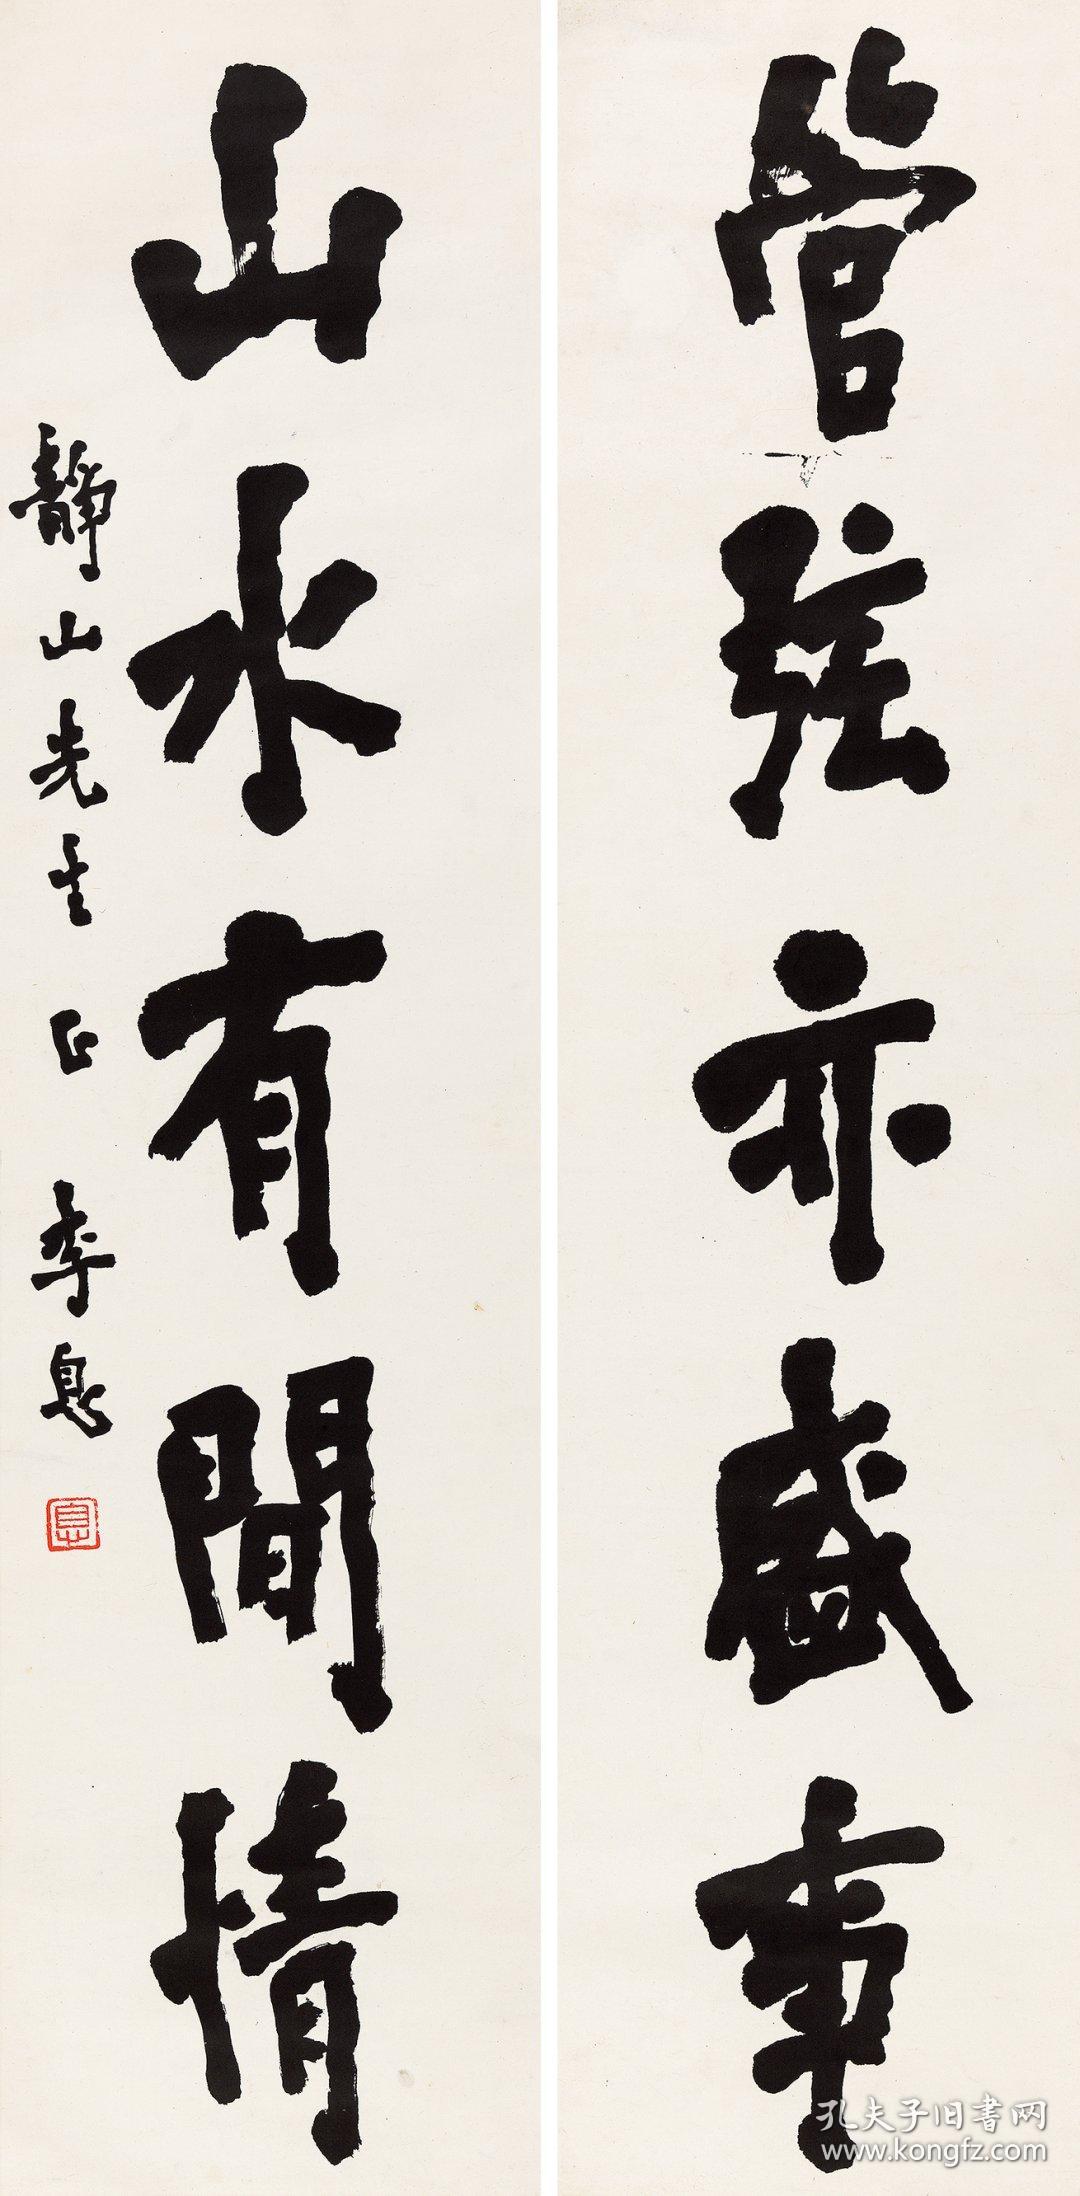 管弦亦盛事
山水有閒情
靜山先生正 李息
息
孔夫子旧書网
www.kongfz.com